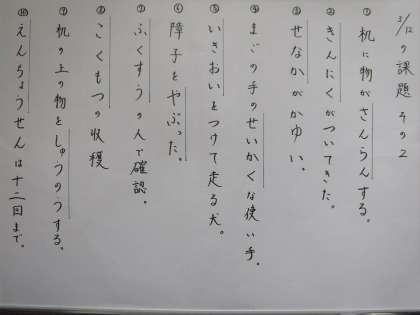 3/12の課題 その2
① 机に物がさんらんする。
② きんにくがついてきた。
③ せなかがかゆい、
④ まごの手のせいかくな使い手.
⑤ いきおいをつけて走る犬。
⑥ 障子をやぶった。
⑦ ふくすうの人で確認.
⑧ こくもつの収穫
⑨ 机の上の物をしゅうのうする.
⑩ えんちょうせんは十二回まで。